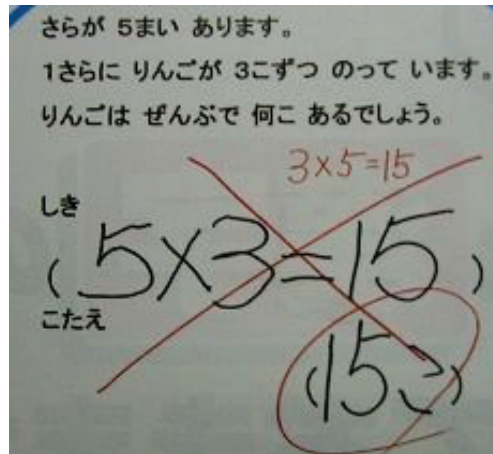 さらが 5まい あります。
1さらに りんごが 3こずつ のって います。
りんごは ぜんぶで 何こ あるでしょう。
3×5=15
しき
(5×3=15)
こたえ
(15こ)